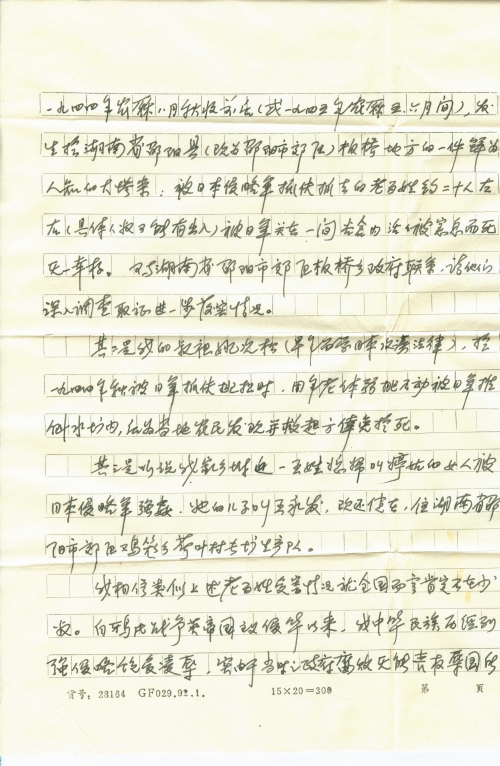 一九四四年农历八月秋收前后(或一九四五年农历五、六月间),发
生于湖南省邵阳县(现为邵阳市郊区)板桥地方的一件鲜为
人知的大惨案:被日本侵略军抓伕抓去的老百姓约二十人左
右(具体人数可能有出入)被日军关在一间仓内活活被窒息而死
灭一幸存。可与湖南省邵阳市郊区板桥乡政府联系,请他们
深入调查取证进一步落实情况。
其二是我的叔祖姚次松(早年留学日本攻读法律),于
一九四四年秋被日军抓伕挑担时,因年老体弱挑不动被日军推
倒水坑内,后为当地农民发现并救起方倖免于死。
其三是听说我家乡附近一王姓媳妇叫婷姑的女人被
日本侵略军强姦,她的儿子叫王永发,现还健在,住湖南省邵
阳市郊区鸡笼乡茶叶村专坊生产队。
我相信类似上述老百姓受害情况就全国而言肯定不在少
数。自鸦片战争英帝国主义侵华以来,我中华民族历经列
强侵略饱受凌辱,实由于当时政府腐败无能丧权辱国所
货号:28164 GF029.92.1. 15×20=300 第 页